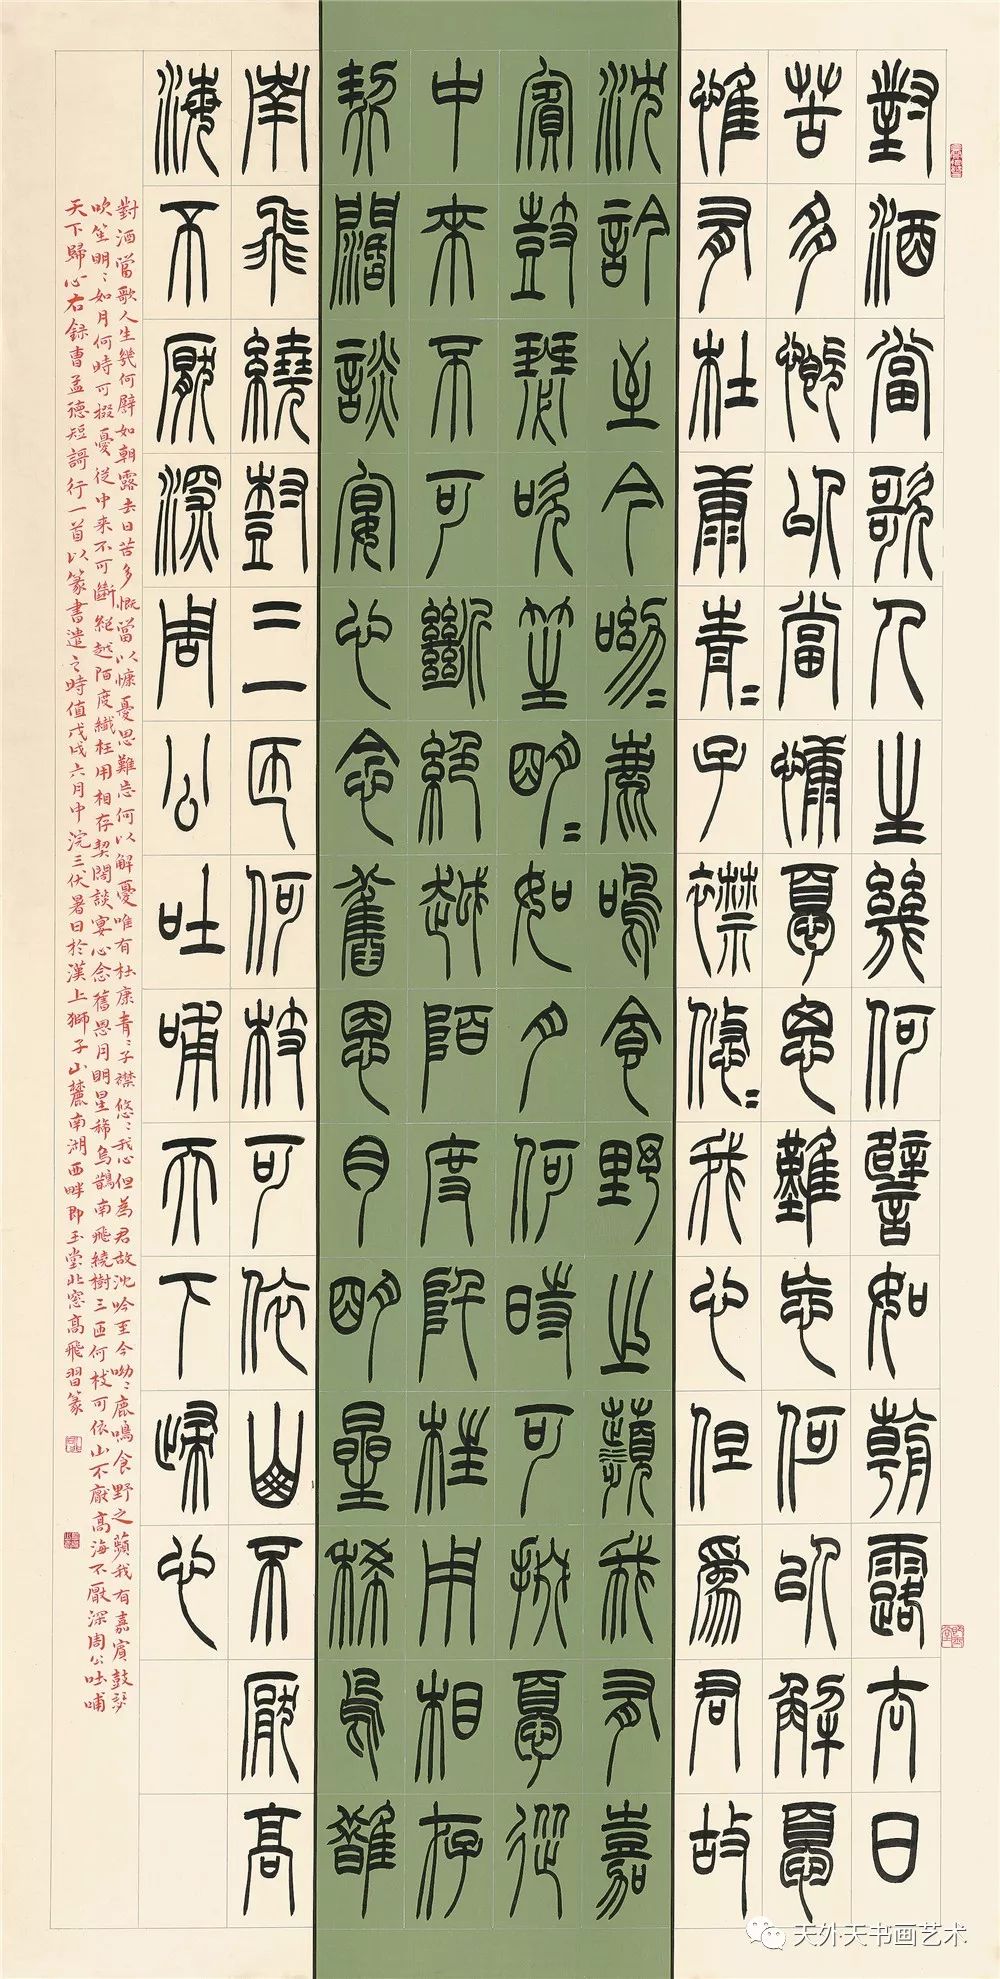 對酒當歌人生幾何譬如朝露去日
苦多慨以當慷憂思難忘何以解憂
惟有杜康青〻子襟悠〻我心但為君故
沈吟至今呦〻鹿鳴食野之蘋我有嘉
賓鼓瑟吹笙明〻如月何時可掇憂從
中來不可斷絕越陌度阡枉用相存
契闊談宴心念舊恩月明星稀烏鵲
南飛繞樹三匝何枝可依山不厭高
海不厭深周公吐哺天下歸心
對酒當歌人生幾何譬如朝露去日苦多慨當以慷憂思難忘何以解憂唯有杜康青〻子襟悠〻我心但為君故沈吟至今呦〻鹿鳴食野之蘋我有嘉賓鼓瑟
吹笙明〻如月何時可掇憂從中來不可斷絕越陌度纖枉用相存契闊談宴心念舊恩月明星稀烏鵲南飛繞樹三匝何枝可依山不厭高海不厭深周公吐哺
天下歸心右録曹孟德短謌行一首以篆書遣之時值戊戌六月中浣三伏暑日於漢上獅子山麓南湖西畔即玉堂北窓高飛習篆
天外天书画艺术